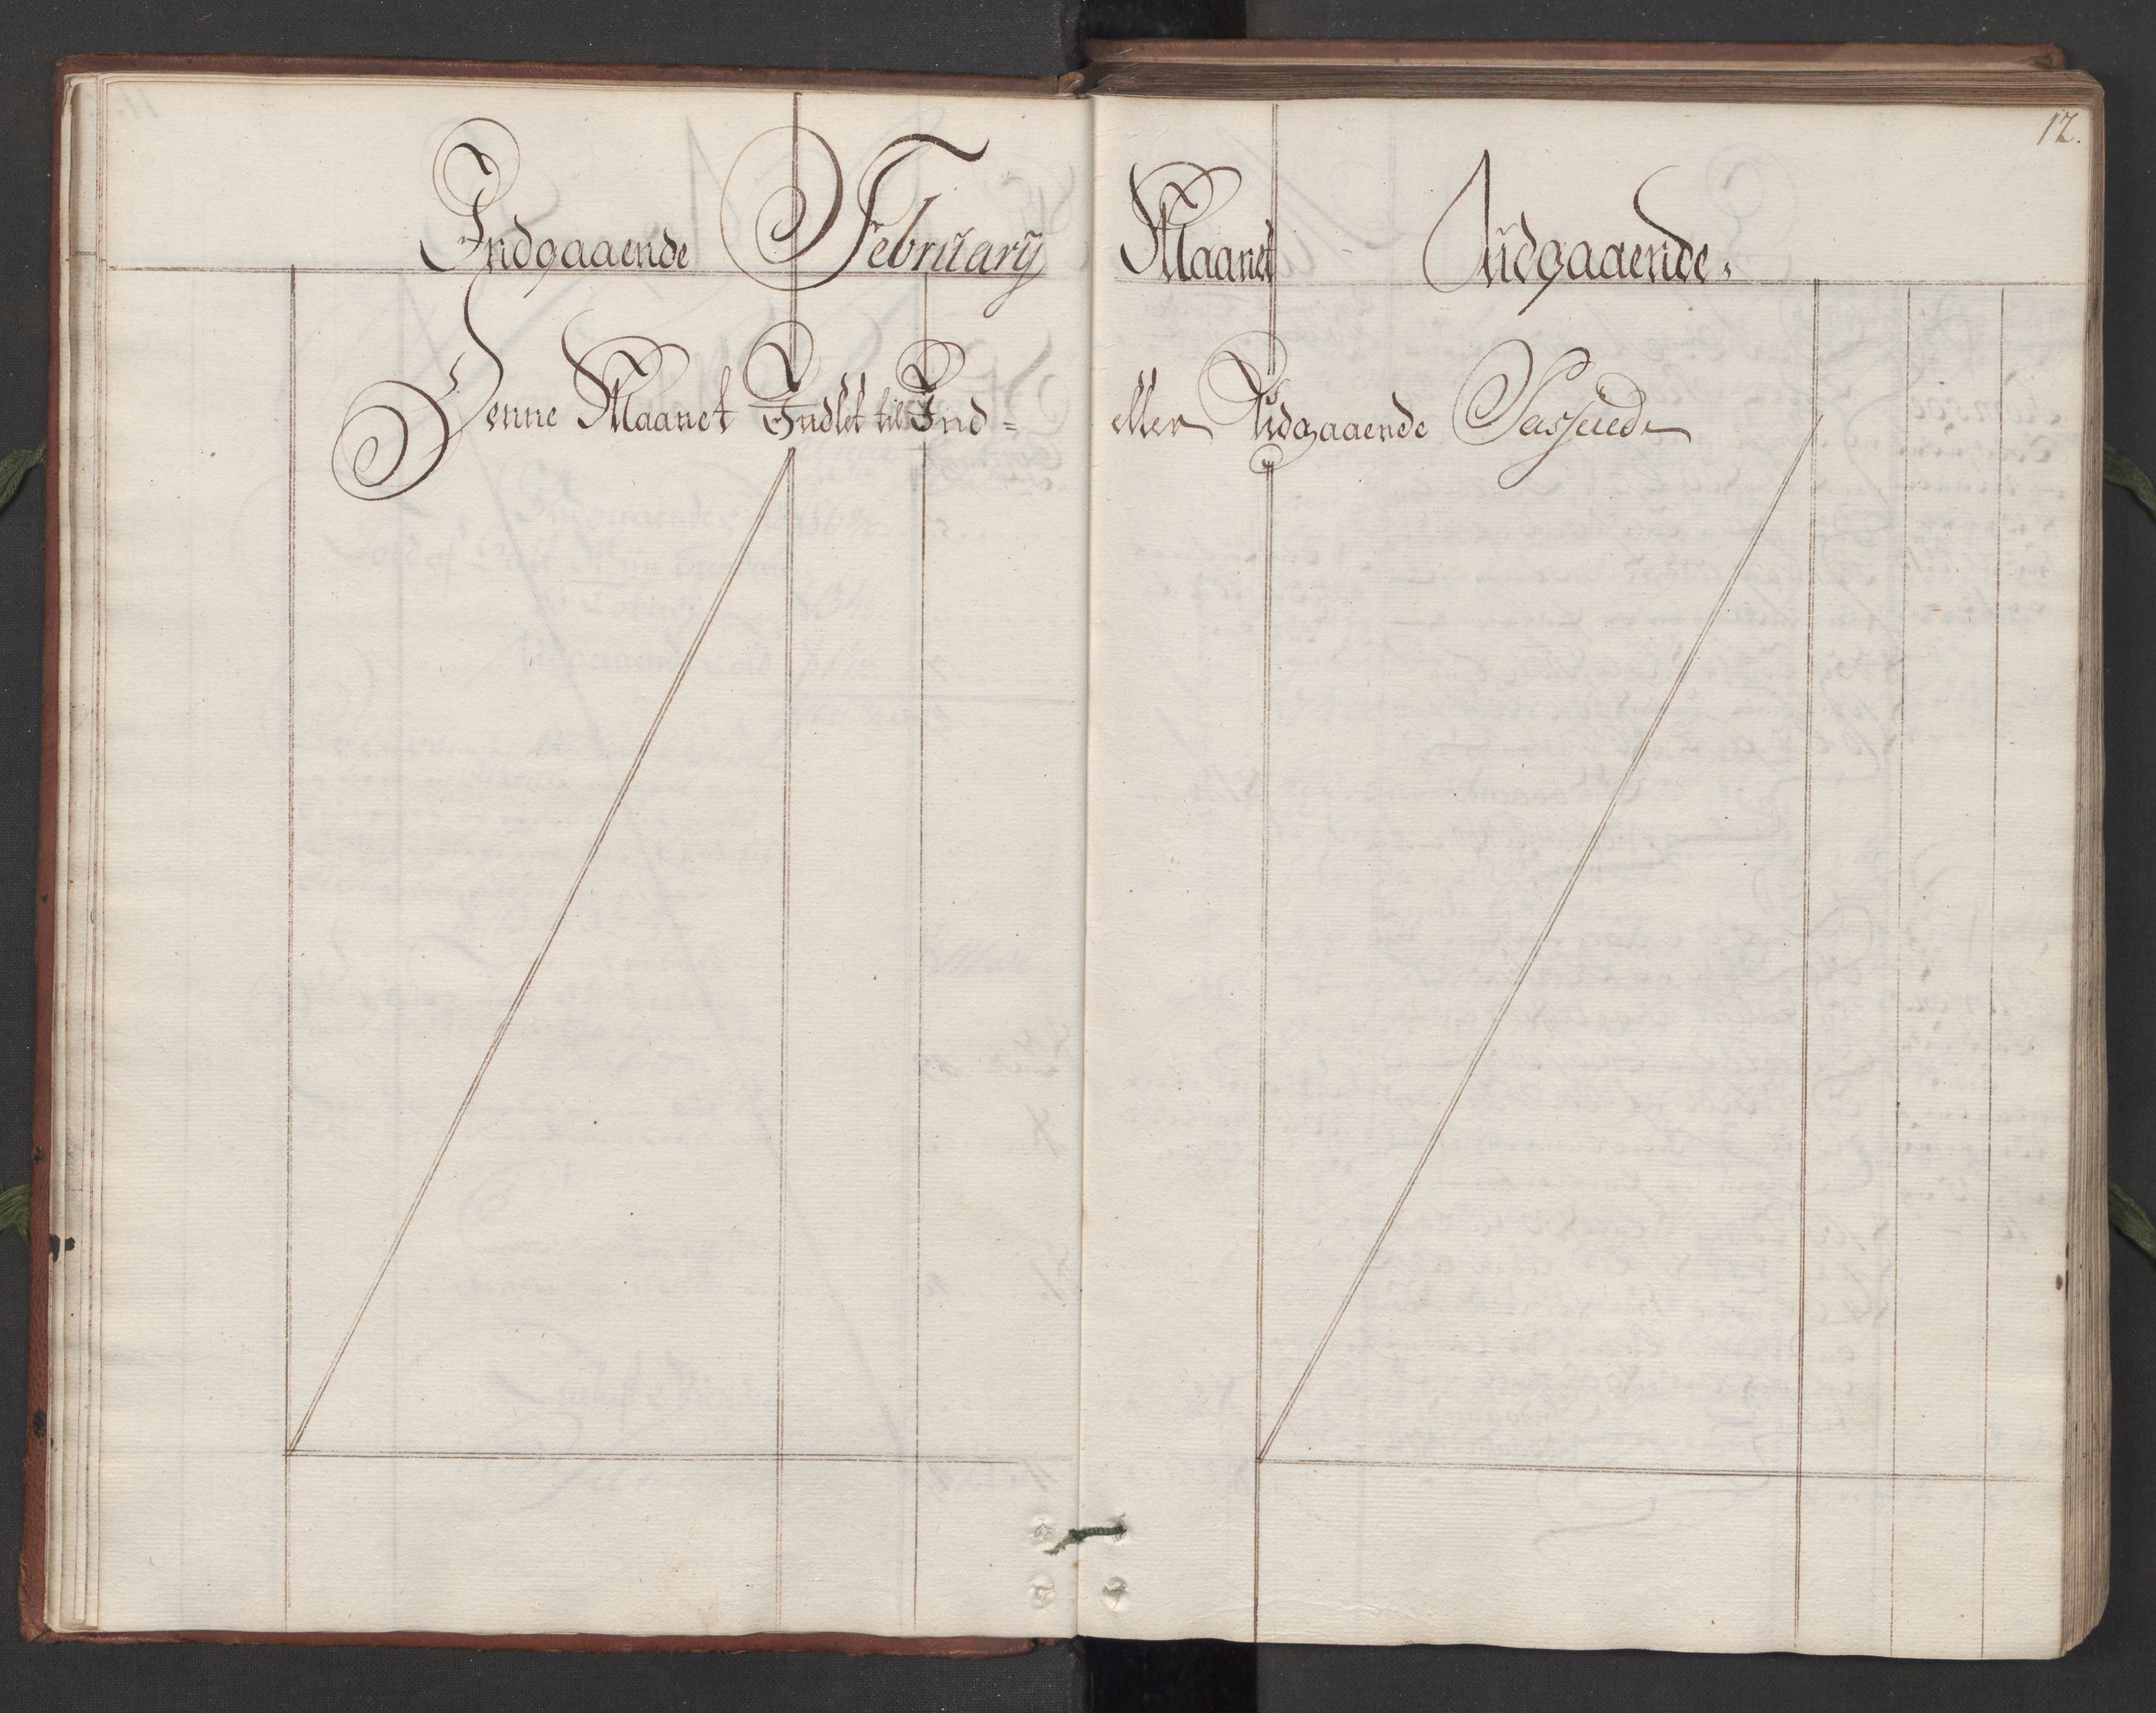 12.
Indgaaende February Maanet Udgaaende.
Denne Maanet Indlet til Ind= eller Udgaaende Passered